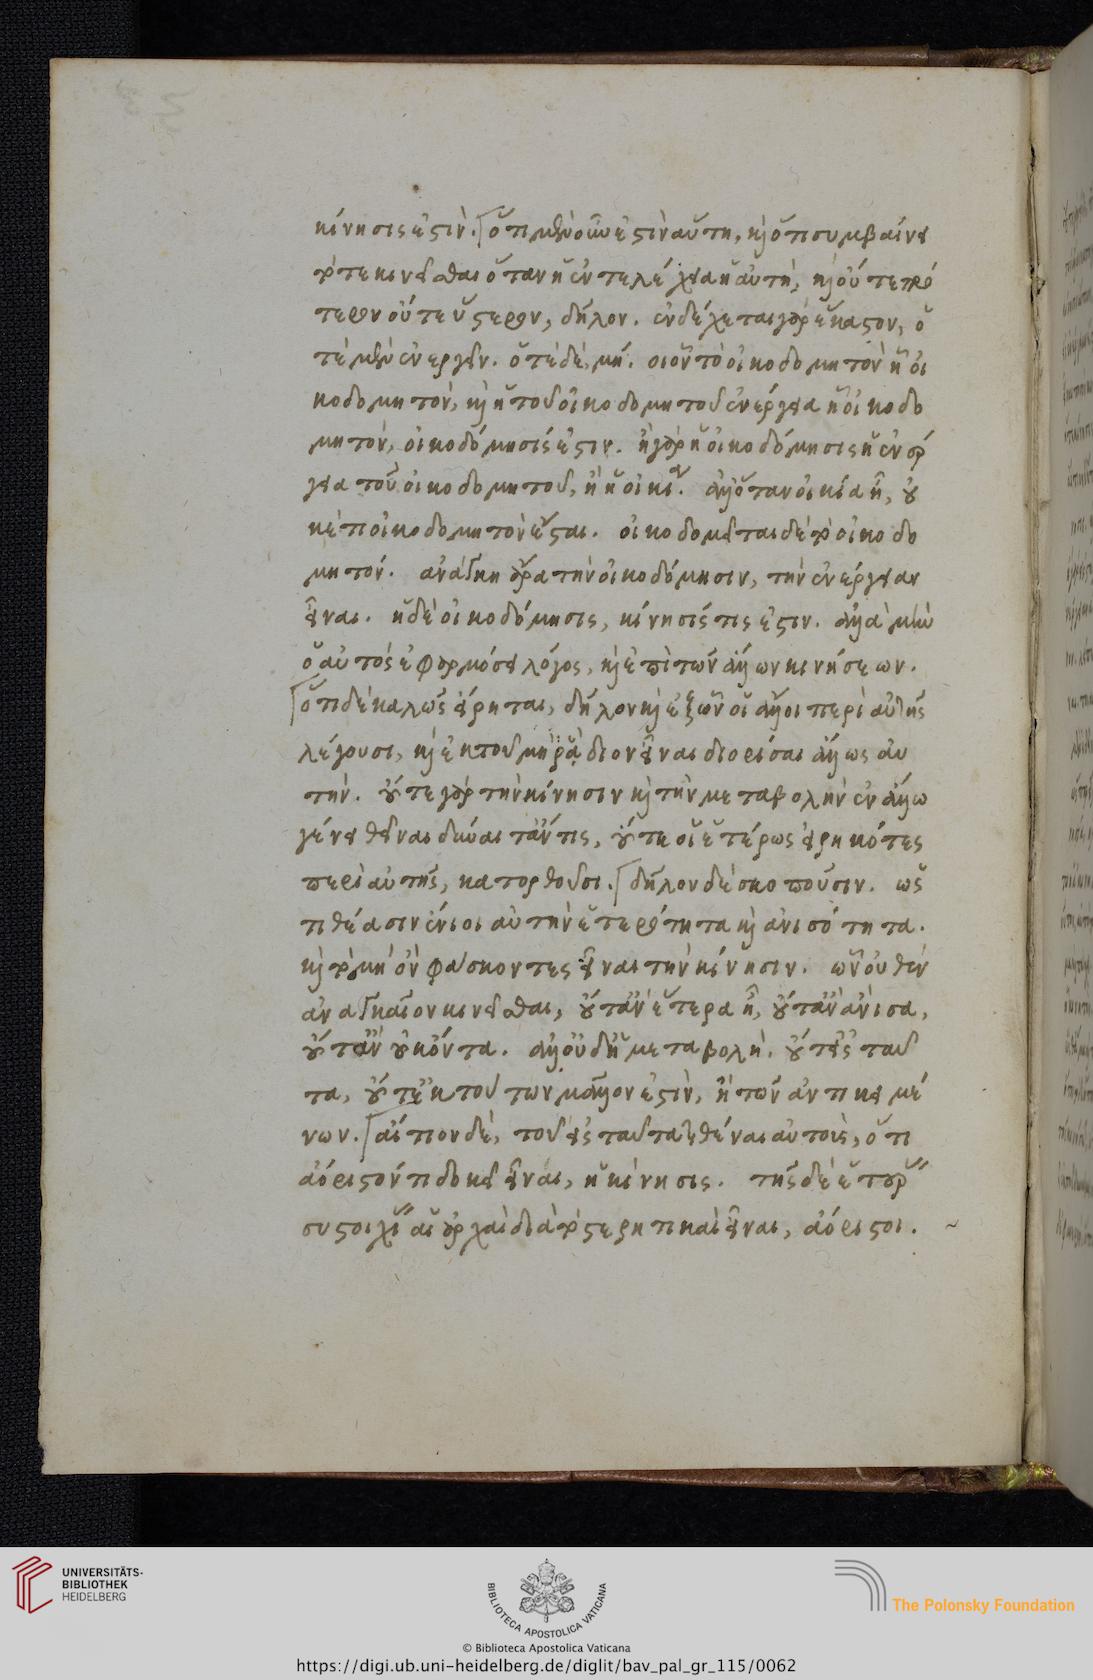 κίνησις ἐστὶν. ὅτι μὲν οὖν ἐστὶν αὕτη, καὶ ὅτι συμβαίνει
τότε κινεῖσθαι ὅταν ἡ ἐντελέχεια ᾖ αὐτὴ, καὶ οὔτε πρό
τερον οὔτε ὕστερον, δῆλον. ἐνδέχεται γὰρ ἕκαστον, ὁ
τὲ μὲν ἐνεργεῖν. ὁτὲ δὲ, μή. οἷον τὸ οἰκοδομητὸν ᾗ οἰ
κοδομητόν, καὶ ἡ τοῦ οἰκοδομητοῦ ἐνέργεια ᾗ οἰκοδο
μητόν, οἰκοδόμησίς ἐστιν. ἢ γὰρ ἡ οἰκοδόμησις ἡ ἐνέρ
γεια τοῦ οἰκοδομητοῦ, ἢ ἡ οἰκία. ἀλλ' ὅταν οἰκία ᾖ, οὐ
κέτι οἰκοδομητὸν ἔσται. οἰκοδομεῖται δὲ τὸ οἰκοδο
μητόν. ἀνάγκη ἄρα τὴν οἰκοδόμησιν, τὴν ἐνέργειαν
εἶναι. ἡ δὲ οἰκοδόμησις, κίνησίς τις ἐστιν. ἀλλὰ μὴν
ὁ αὐτός ἐφαρμόσει λόγος, καὶ ἐπὶ τῶν ἄλλων κινήσεων.
ὅτι δὲ καλῶς εἴρηται, δῆλον καὶ ἐξ ὧν οἱ ἄλλοι περὶ αὐτῆς
λέγουσι, καὶ ἐκ τοῦ μὴ ῥᾴδιον εἶναι διορίσαι ἄλλως αὐ
τήν. οὔτε γὰρ τὴν κίνησιν καὶ τὴν μεταβολὴν ἐν ἄλλω
γένει θεῖναι δύναιτ' ἄν τις, οὔτε οἱ ἑτέρως εἰρηκότες
περὶ αὐτῆς, κατορθοῦσι. δῆλον δὲ σκοποῦσιν. ὡς
τιθέασιν ἔνιοι αὐτὴν ἑτερότητα καὶ ἀνισότητα.
καὶ τὸ μὴ ὂν φάσκοντες εἶναι τὴν κίνησιν. ὧν οὐθὲν
ἀναγκαῖον κινεῖσθαι, οὔτ' ἂν ἕτερα ᾖ, οὔτ' ἂν ἄνισα,
οὔτ' ἂν οὐκ ὄντα. ἀλλ' οὐδ' ἡ μεταβολὴ. οὔτ' εἰς ταῦ
τα, οὔτ' ἐκ τούτων μᾶλλον ἐστὶν, ἢ τῶν ἀντικειμέ
νων. αἴτιον δὲ, τοῦ εἰς ταῦτα τιθέναι αὐτοῖς, ὅτι
ἀόριστόν τι δοκεῖ εἶναι, ἡ κίνησις. τῆς δὲ ἑτέρας
συστοιχίας αἱ ἀρχαὶ διὰ τὸ στερητικαὶ εἶναι, ἀόριστοι.
UNIVERSITÄTS-
BIBLIOTHEK
HEIDELBERG
BIBLIOTECA APOSTOLICA VATICANA
The Polonsky Foundation
© Biblioteca Apostolica Vaticana
https://digi.ub.uni-heidelberg.de/diglit/bav_pal_gr_115/0062